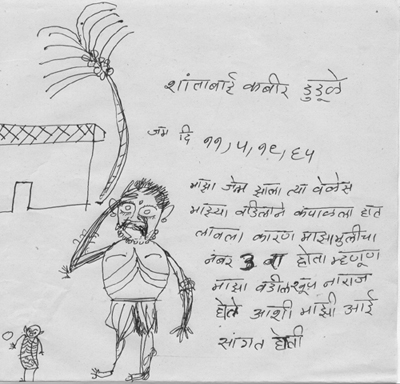 शांताबाई कबीर डुडूळे
जन्म दि ११/५/१९/६५
माझा जन्म झाला त्या वेळेस
माझ्या वडीलाने कपाळला हात
लावला कारण माझा मुलीचा
नंबर 3 वा होता म्हणूण
माझा वडील खूप नाराज
होते आशी माझी आई
सांगत होती